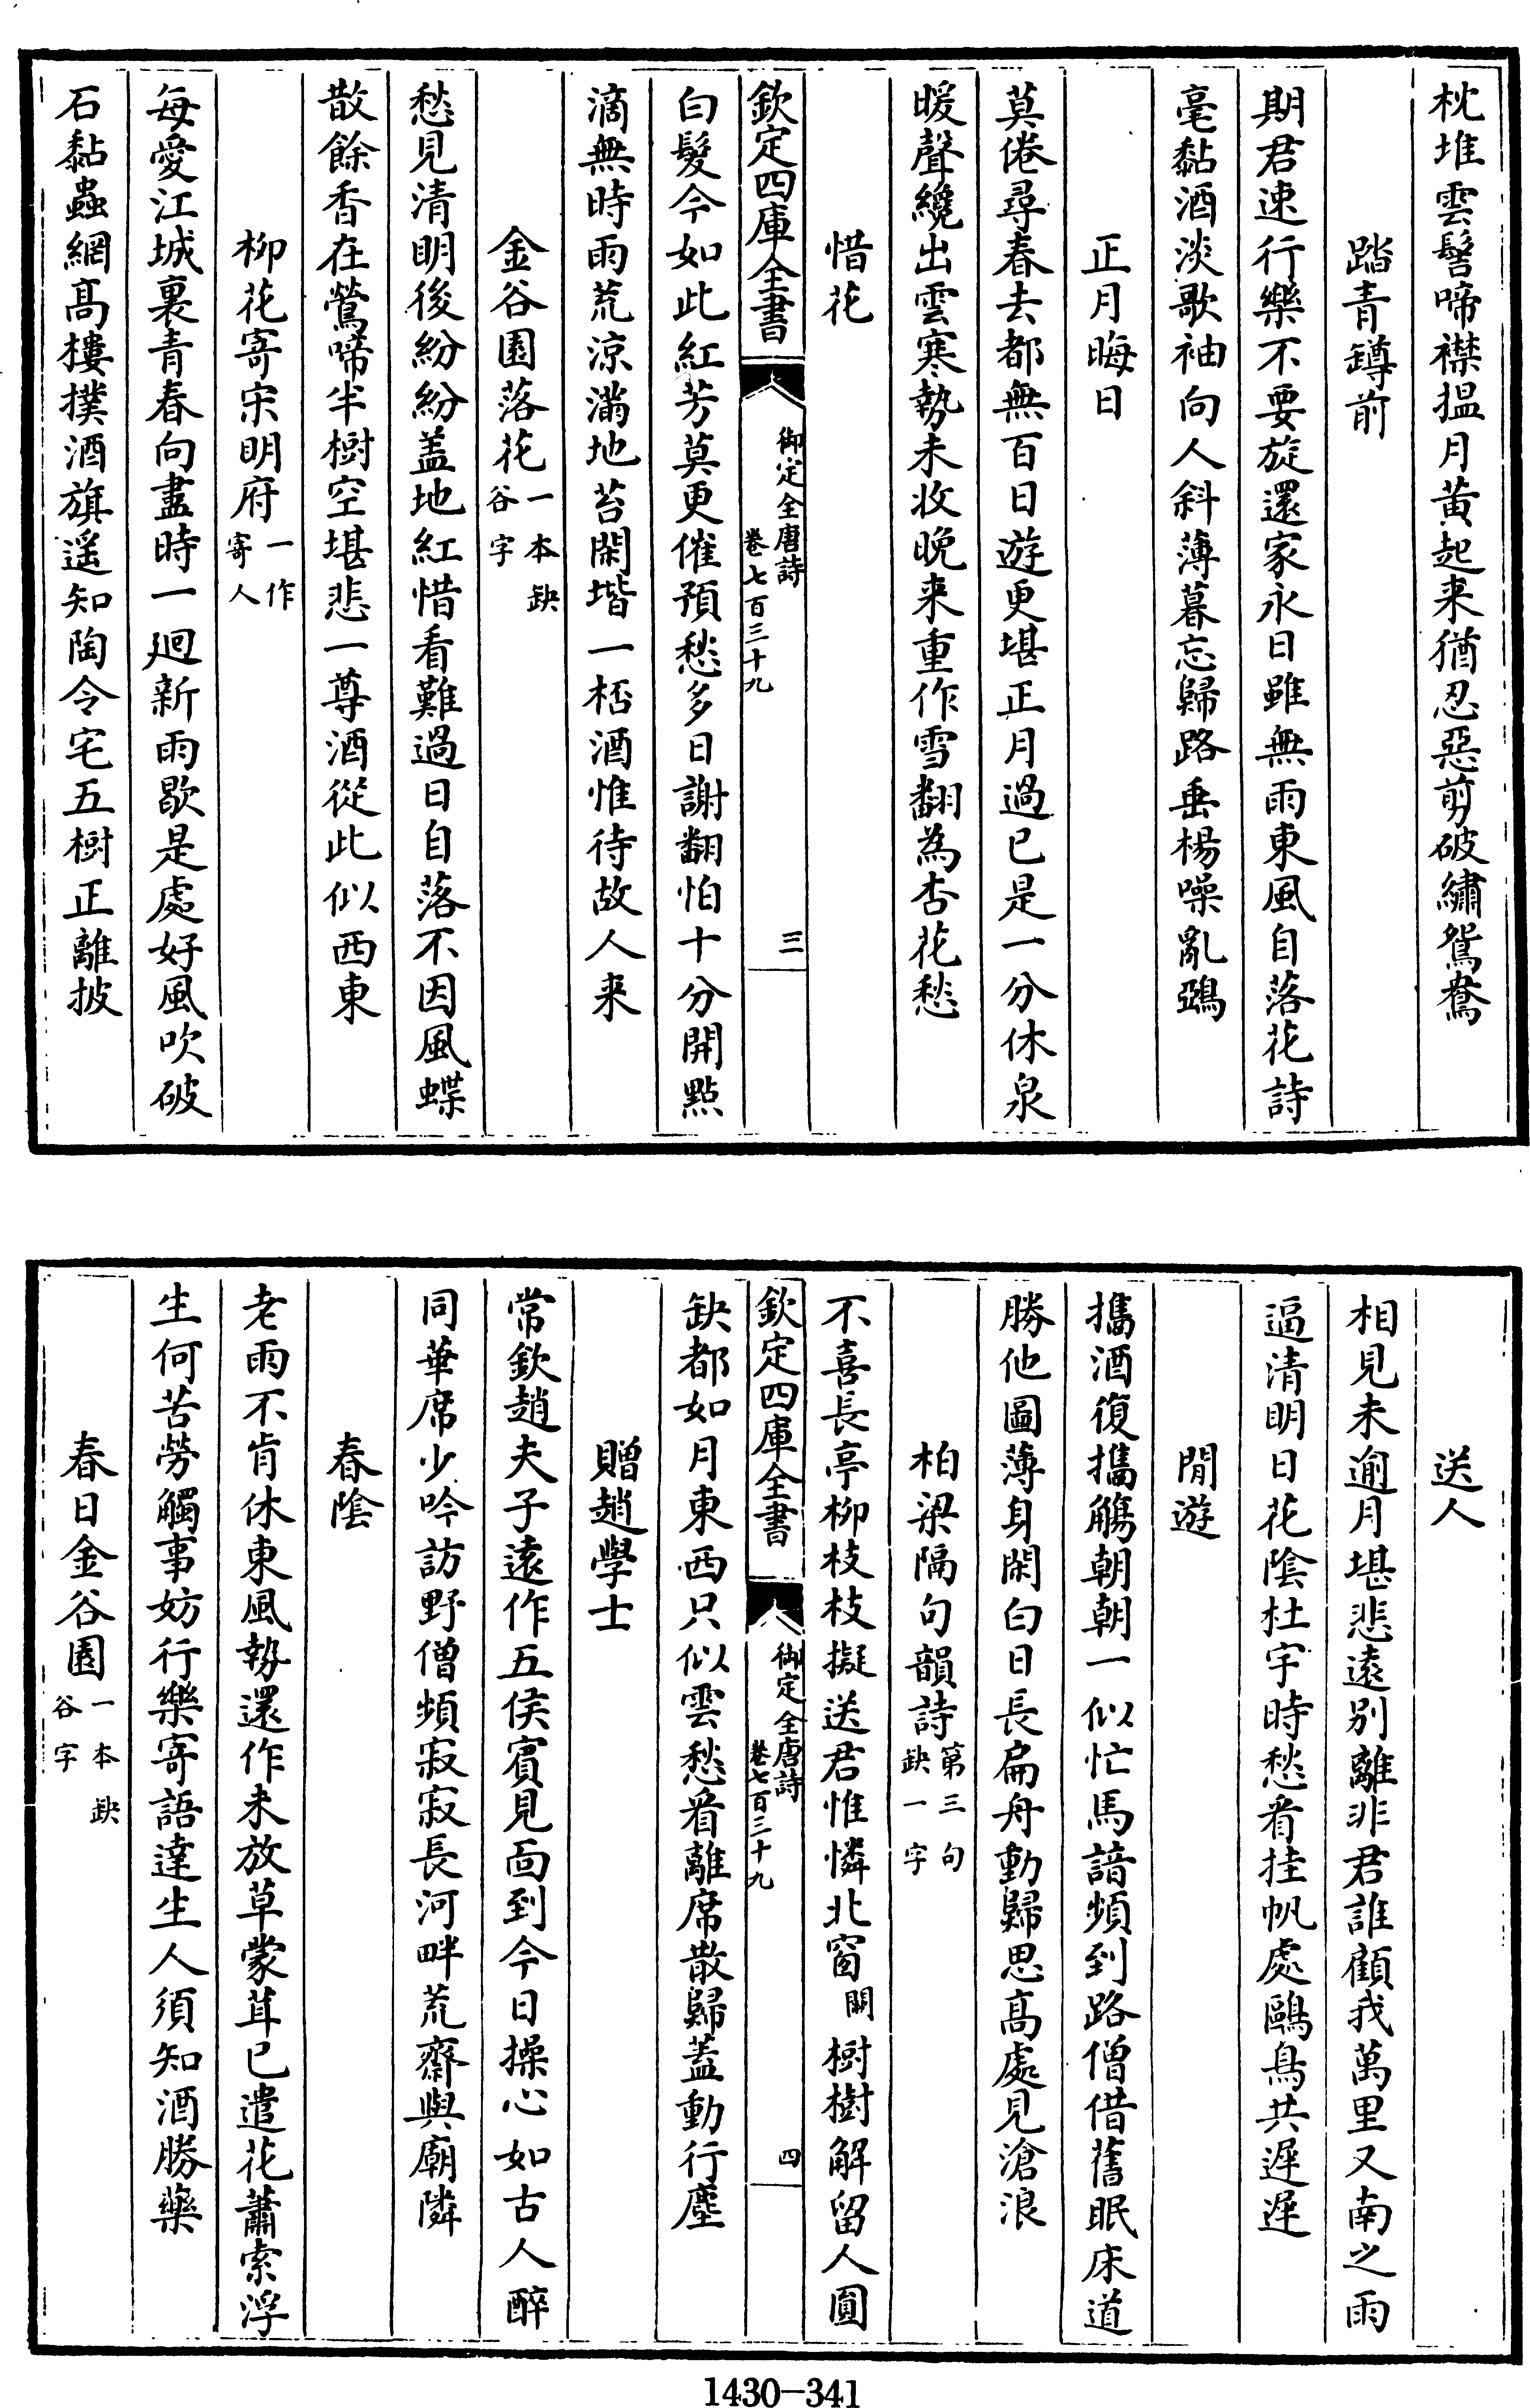 枕堆雲髻啼襟搵月黃起来猶忍惡剪破繡鴛鴦
踏青罇前
期君速行樂不要旋還家永日雖無雨東風自落花詩
毫黏酒淡歌袖向人斜薄暮忘歸路垂楊噪亂鵶
正月晦日
莫倦尋春去都無百日遊更堪正月過已是一分休泉
暖聲纔出雲寒勢未收晚来重作雪翻為杏花愁
惜花
欽定四庫全書
御定全唐詩
卷七百三十九
三
白髮今如此紅芳莫更催預愁多日謝翻怕十分開點
滴無時雨荒涼滿地苔閑堦一桮酒惟待故人来
金谷園落花一本缺谷字
愁見清明後紛紛盖地紅惜看難過日自落不因風蝶
散餘香在鶯啼半樹空堪悲一尊酒從此似西東
柳花寄宋明府一作寄人
每愛江城裏青春向盡時一廻新雨歇是處好風吹破
石黏蟲網髙樓撲酒旗遥知陶令宅五樹正離披
送人
相見未逾月堪悲遠别離非君誰顧我萬里又南之雨
逼清明日花陰杜宇時愁看挂帆處鷗鳥共遲遲
閒遊
攜酒復攜觴朝朝一似忙馬諳頻到路僧借舊眠床道
勝他圖薄身閑白日長扁舟動歸思髙處見滄浪
柏梁隔句韻詩第三句缺一字
不喜長亭柳枝枝擬送君惟憐北窗闕樹樹解留人圓
欽定四庫全書
御定全唐詩
卷七百三十九
四
缺都如月東西只似雲愁看離席散歸蓋動行塵
贈趙學士
常欽趙夫子遠作五侯賓見面到今日操心如古人醉
同華席少吟訪野僧頻寂寂長河畔荒齋與廟隣
春陰
老雨不肯休東風勢還作未放草蒙茸已遣花蕭索浮
生何苦勞觸事妨行樂寄語達生人須知酒勝藥
春日金谷園一本缺谷字
1430-341